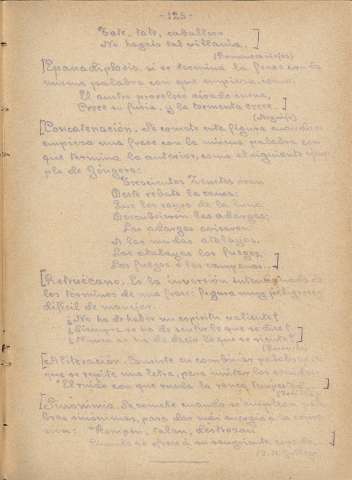 -125-
Tate, tate, caballero
No hagáis tal villanía.]
(Romancero)
[Epanadiplosis. si se termina la frase con la
misma palabra con que empieza, como:
Crece su furia, y la tormenta crece.]
(Arguijo)
[Concatenación. Se comete esta figura cuando se
empieza una frase con la misma palabra con
que termina la anterior, como el siguiente ejem-
plo de Góngora:
Trescientos Zenetes eran
Deste rebato la causa:
Que los rayos de la luna
Descubrieron las adargas;
Las adargas avisaron
A las mudas atalayas,
Las atalayas los fuegos,
Los fuegos a las campanas.]
[Retruécano. Es la inversión intencionada de
los términos de una frase: figura muy peligrosa
difícil de manejar.
¿No ha de haber un espíritu valiente?
¿Siempre se ha de sentir lo que se dice?
¿Nunca se ha de decir lo que se siente?]
[Aliteración. Consiste en combinar palabras en
que se repite una letra, para imitar los sonidos
El ruido con que rueda la ronca tempestad.]
(Zorrilla)
[Sinonimia. Se comete cuando se emplean
bras sinónimas, para dar más energía a la expre-
sión: Rompen, talan, destrozan